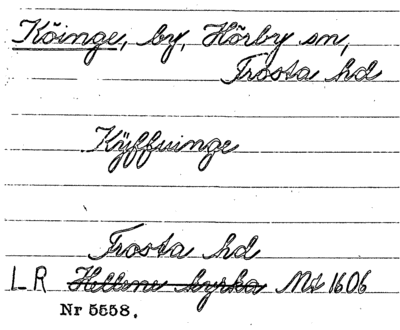 Köinge, by, Hörby sn,
Frosta hd
Kÿffuinge
Frosta hd
LR Hellene kyrka Mt 1606
Nr 5558.